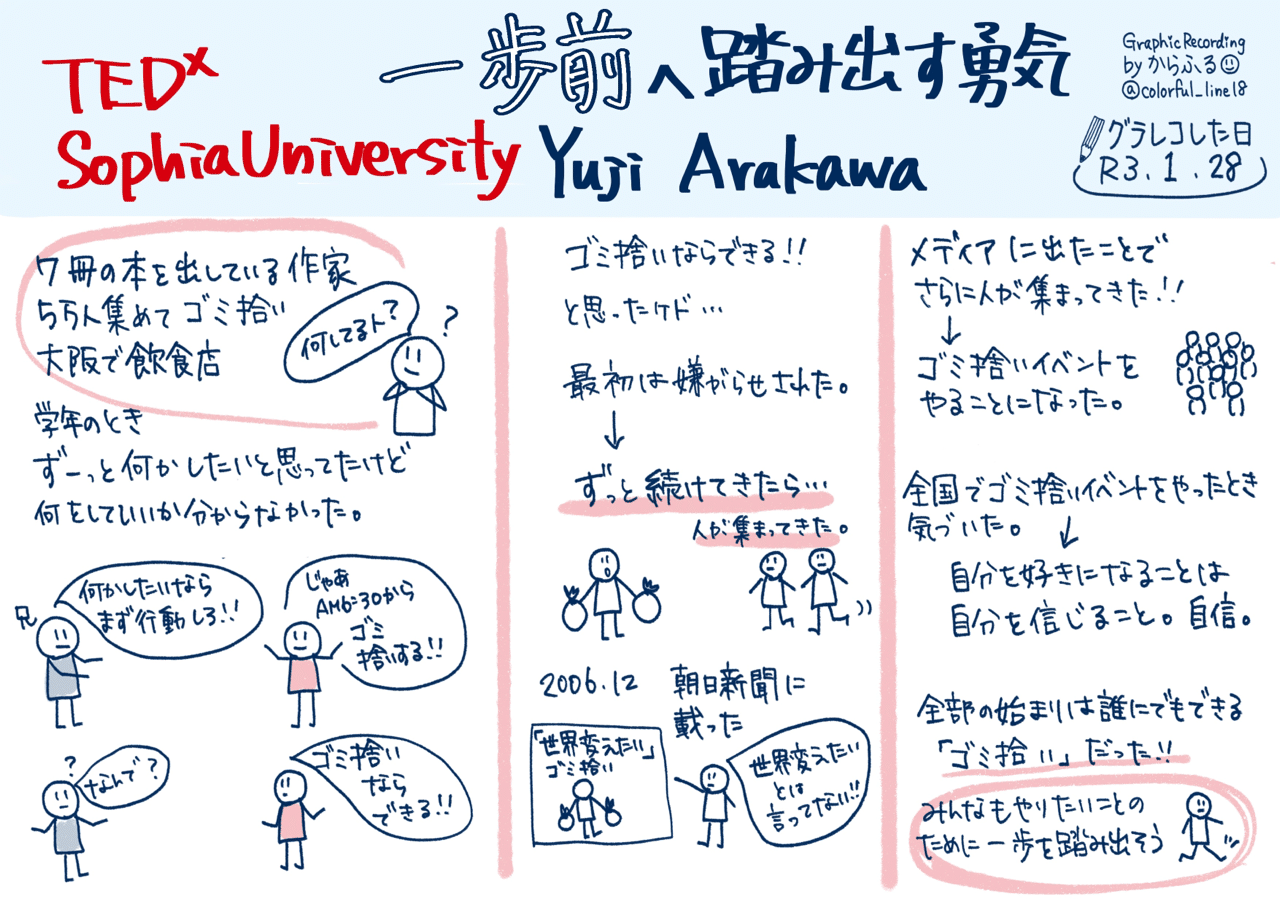 TEDx
SophiaUniversity
一歩前へ踏み出す勇気
Yuji Arakawa
Graphic Recording
by からふる
@colorful_line18
グラレコした日
R3.1.28
7冊の本を出している作家
5万人集めてゴミ拾い
大阪で飲食店
何してる人?
?
学年のとき
ずーっと何かしたいと思ってたけど
何をしていいか分からなかった。
兄
何かしたいなら
まず行動しろ!!
じゃあ
AM6:30から
ゴミ
捨いする!!
?
なんで?
ゴミ捨い
なら
できる!!
ゴミ捨いならできる!!
と思ったケド…
最初は嫌がらせされた。
↓
ずっと続けてきたら…
人が集まってきた。
2006.12 朝日新聞に
載った
「世界変えたい」
ゴミ拾い
世界変えたい
とは
言ってない!!
メディアに出たことで
さらに人が集まってきた!!
↓
ゴミ捨いイベントを
やることになった。
全国でゴミ捨いイベントをやったとき
気づいた。
↓
自分を好きになることは
自分を信じること。自信。
全部の始まりは誰にでもできる
「ゴミ拾い」だった!!
みんなもやりたいことの
ために一歩を踏み出そう